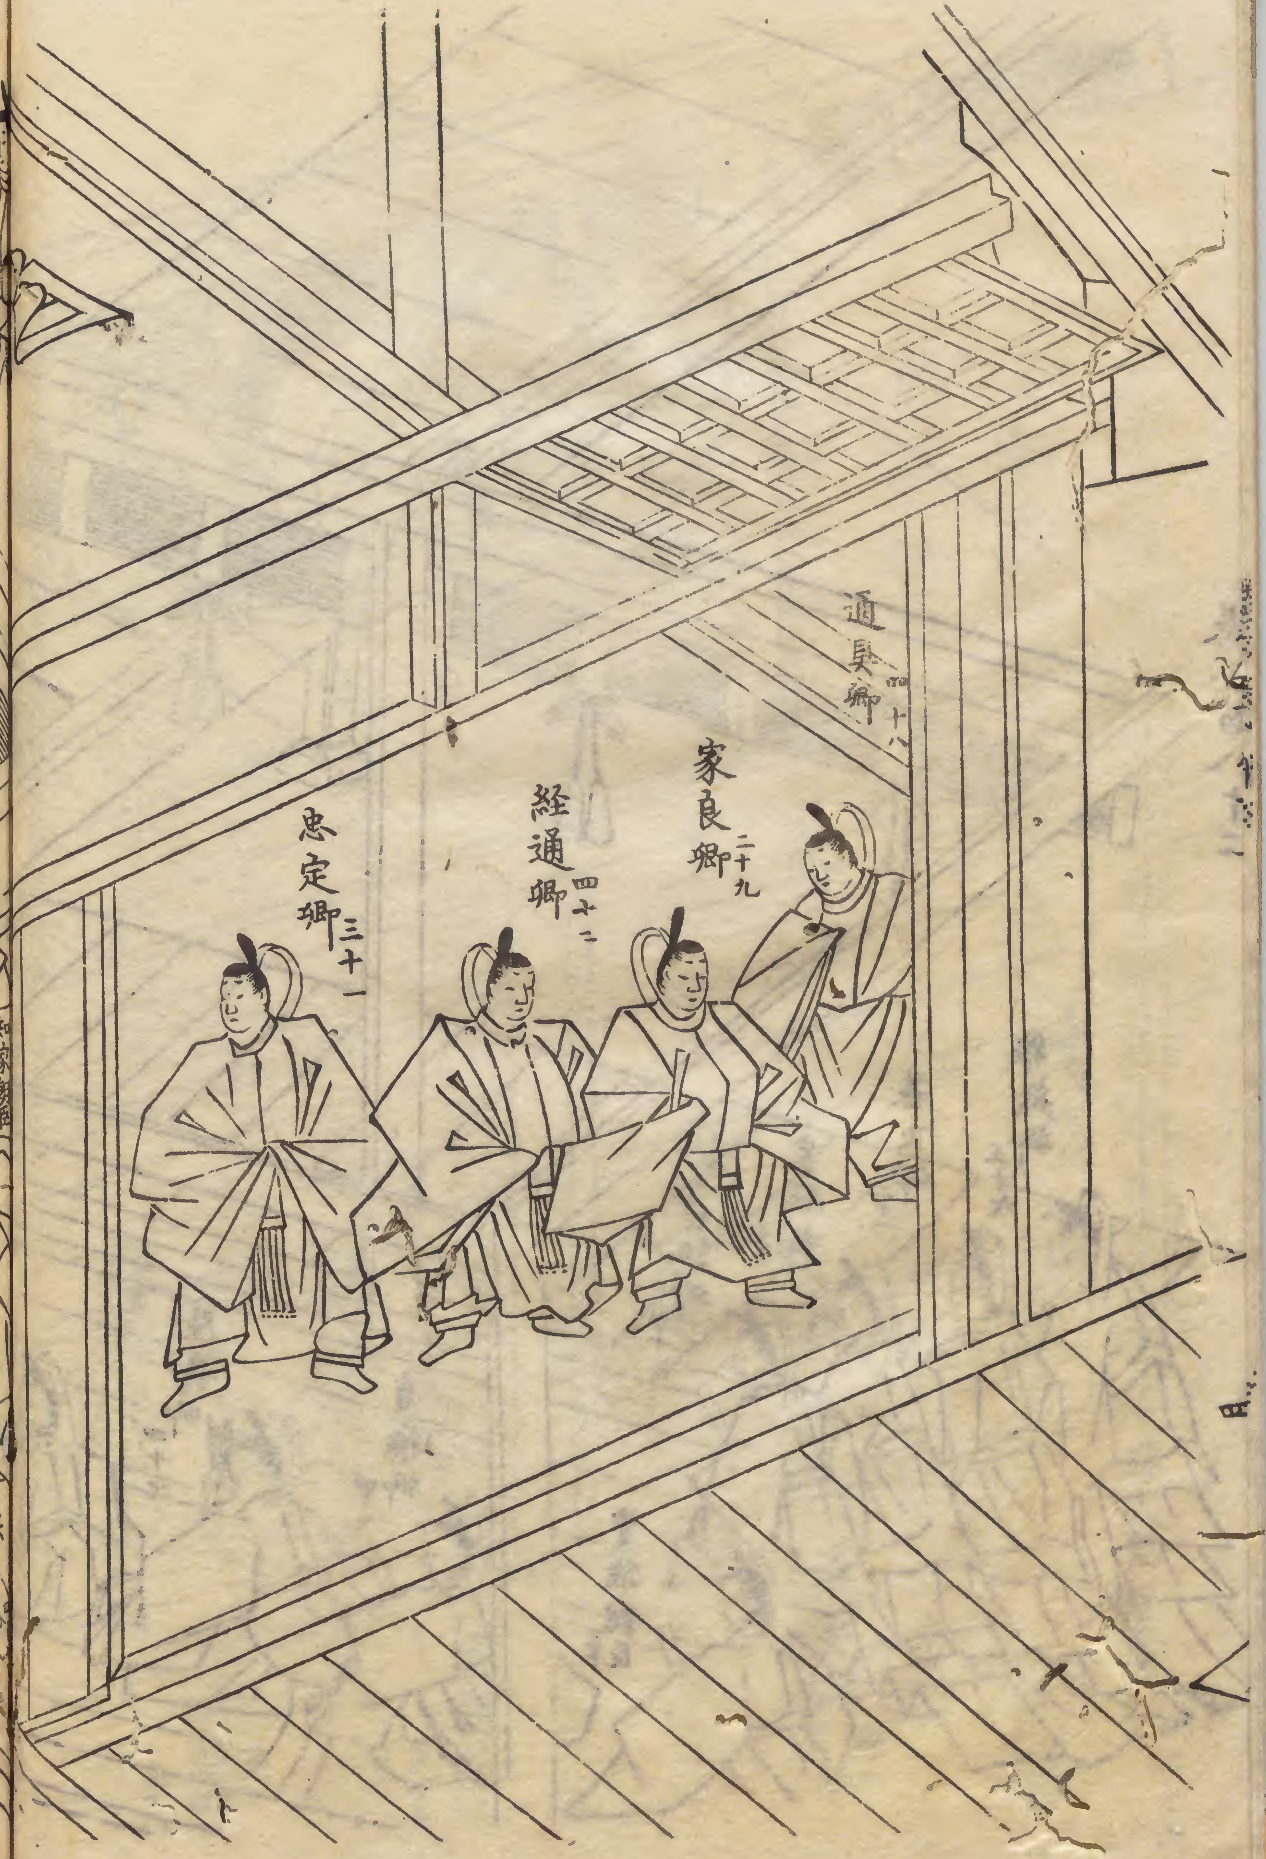 通具卿
四十八
家良卿
二十九
経通卿
四十二
忠定卿
三十一